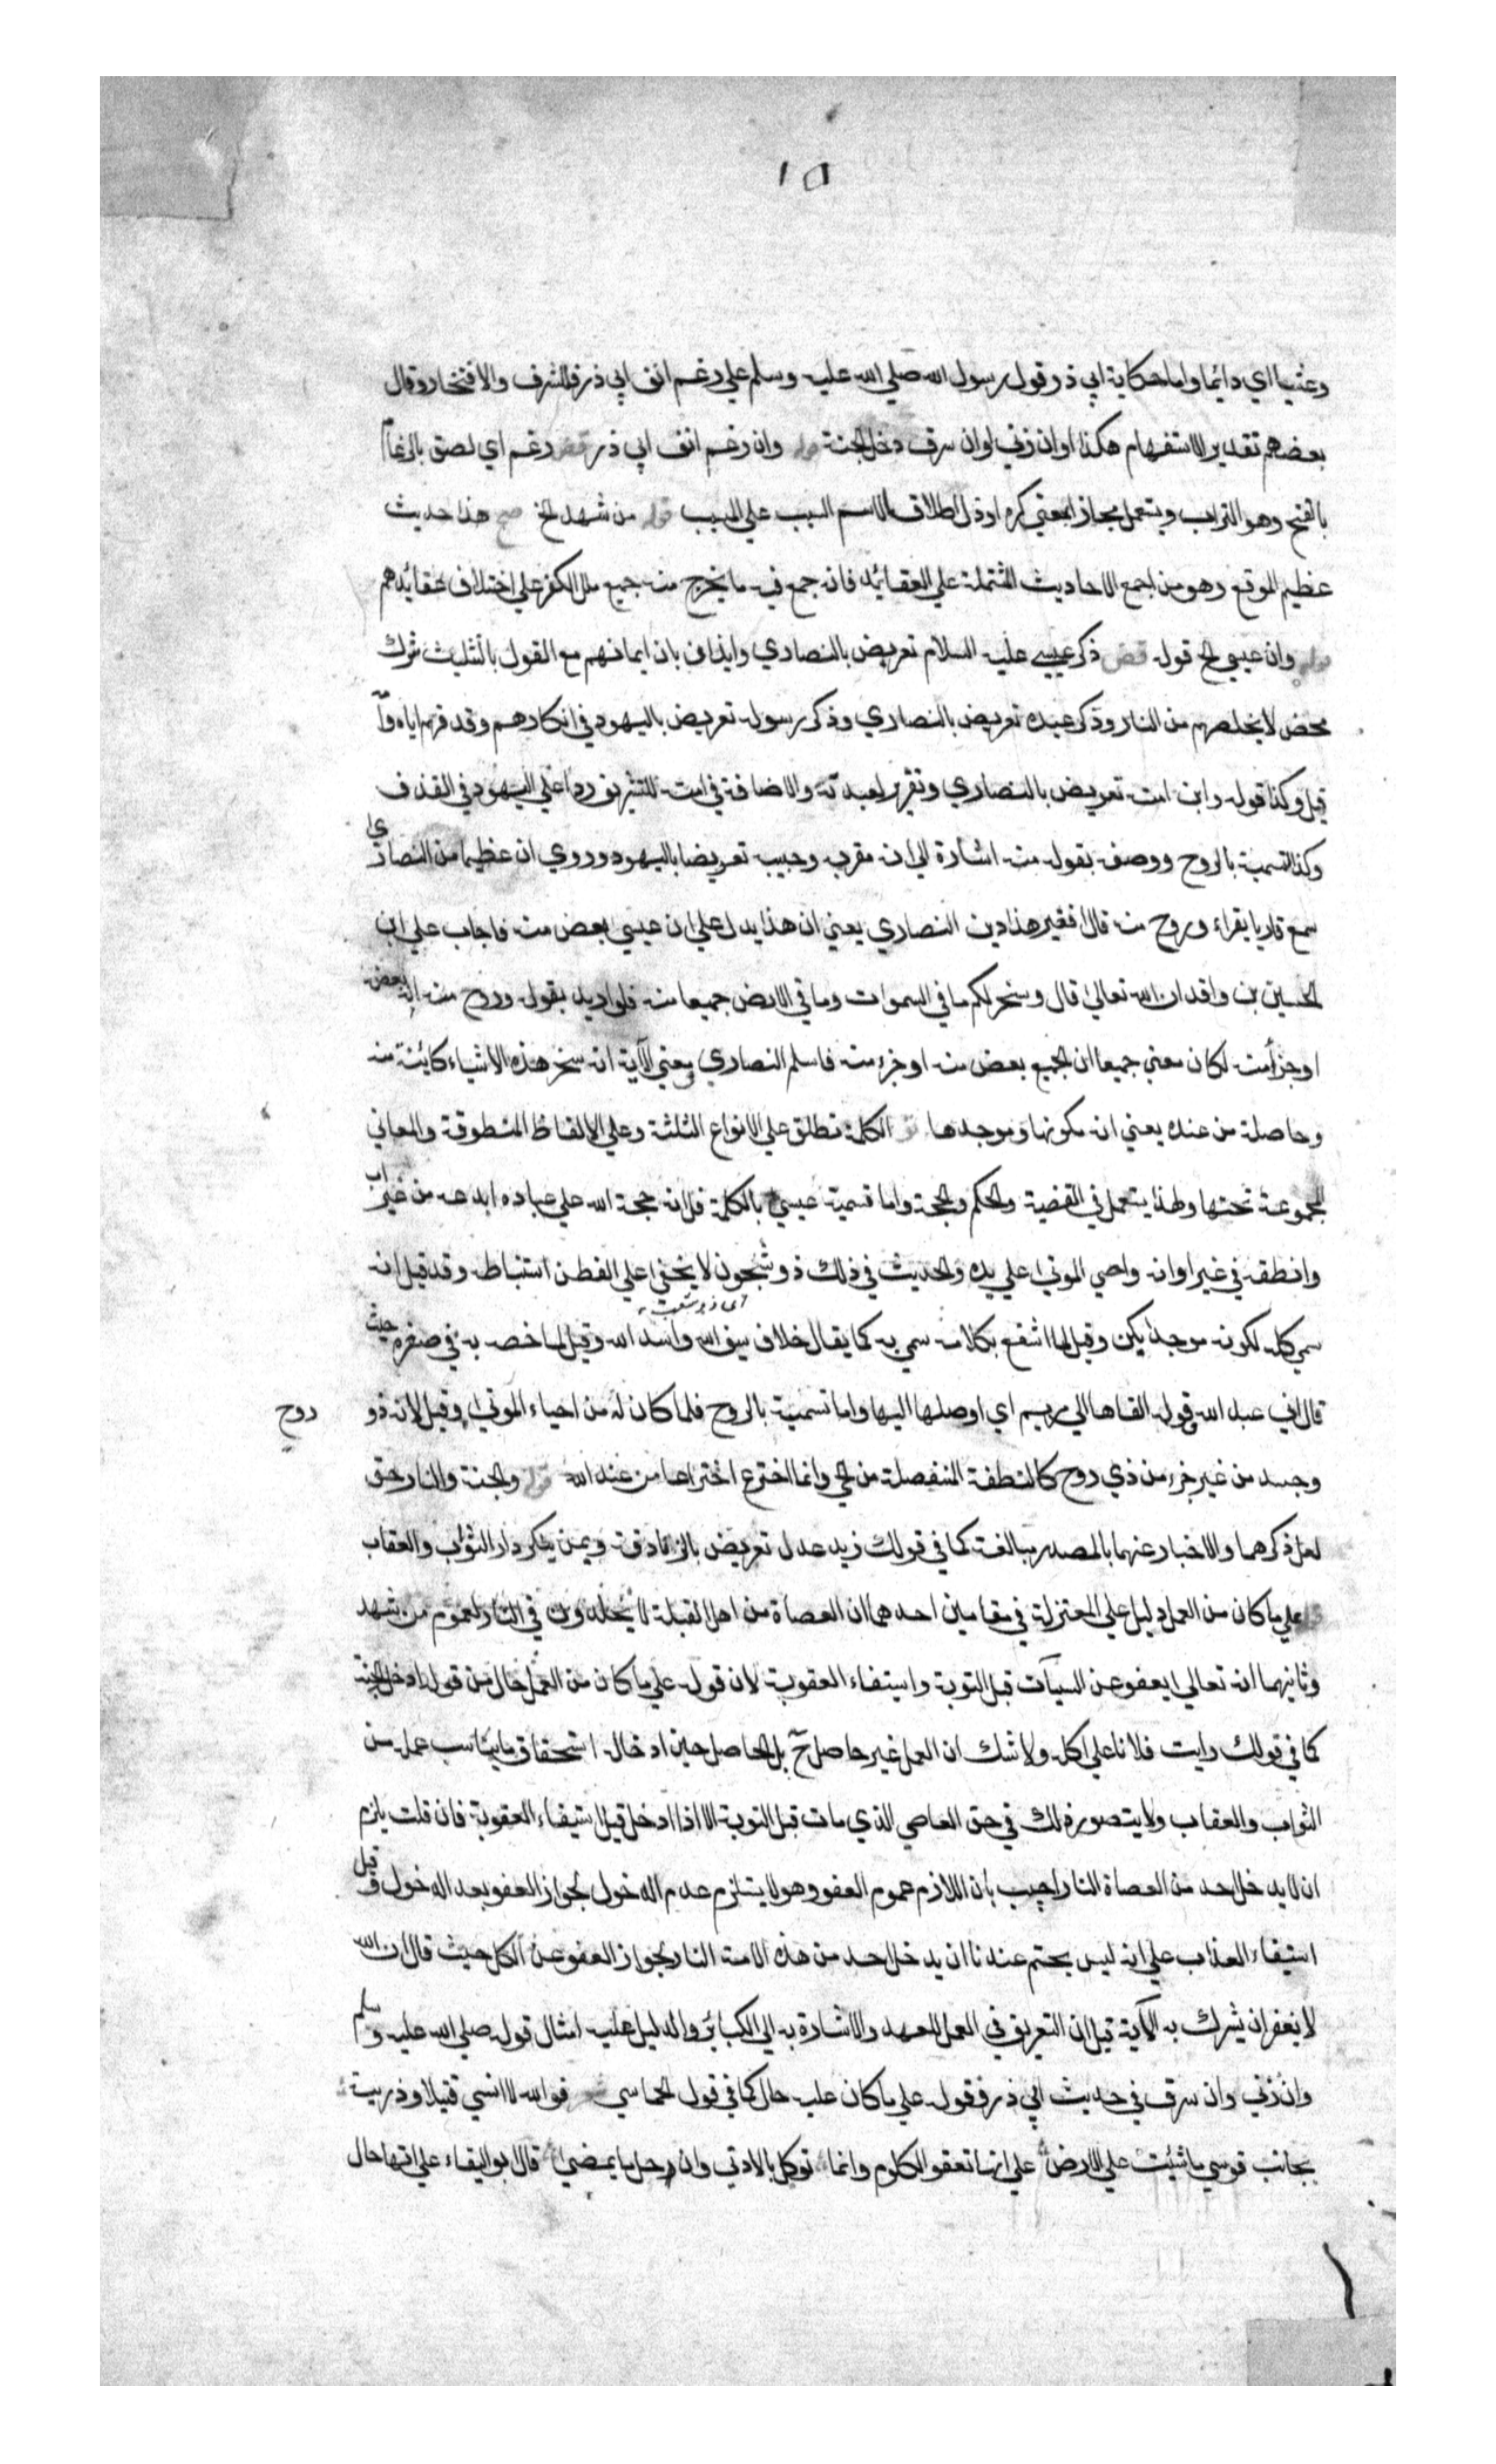 ١٥
وعشيا اي دائما واما حكاية ابي ذر قول رسول الله صلي الله عليه وسلم علي رغم انف ابي ذر فللشرف والافتخار وقال
بعضهم تقدير الاستفهام هكذا او ان زني او ان سرق دخل الجنة قوله وان رغم انف ابي ذر قض رغم اي لصق بالرغام
بالفتح وهو التراب ويستعمل مجازا بمعني كره او ذل اطلاق لاسم السبب علي المسبب قوله من شهد الخ مح هذا حديث
عظيم الموقع وهو من اجمع الاحاديث المشتملة علي العقائد فانه جمع فيه ما يخرج منه جميع ملل الكفر علي اختلاف عقائدهم
قوله وان عيسي الخ قوله قض ذكر عيسي عليه السلام تعريض بالنصاري وايذان بان ايمانهم مع القول بالتثليث شرك
محض لا يخلصهم من النار وذكر عبده تعريض بالنصاري وذكر رسوله تعريض باليهود في انكارهم وقذفهم اياه وامه
قيل وكذا قوله وابن امته تعريض بالنصاري وتقرير لعبديته والاضافة في امته للتشريف ردا علي اليهود في القذف
وكذا تسميته بالروح ووصفه بقوله منه اشارة الي انه مقربه وحبيبه تعريضا باليهود وروي ان عظيما من النصاري
سمع قاريا يقراء وروح منه قال افغير هذا دين النصاري يعني ان هذا يدل علي ان عيسي بعض منه فاجاب علي ابن
الحسين بن واقد ان الله تعالي قال وسخر لكم ما في السموات وما في الارض جميعا منه فلو اريد بقوله وروح منه انه بعض
او جزأ منه لكان معني جميعا ان الجميع بعض منه او جزء منه فاسلم النصاري ومعني الآية انه سخر هذه الاشياء كائنة منه
وحاصلة من عنده يعني انه مكونها وموجدها الكلمة تطلق علي الانواع الثلثة وعلي الالفاظ المنطوقة والمعاني
المجموعة تحتها ولهذا يستعمل في القضية والحكم والحجة واما تسمية عيسي بالكلمة فلانه حجة الله علي عباده ابدعه من غير اب
وانطقه في غير اوانه واحيي الموتي علي يده والحديث في ذلك ذو شجون لا يخفي علي الفطن استنباطه وقد قيل انه
اي ذو شعب
سمي كلمة لكونه موجدا بكن وقيل لما انتفع بكلامه سمي به كما يقال فلان سيف الله واسد الله وقيل لما خصه به في صغره حيث
قال اني عبد الله وقوله القاها الي مريم اي اوصلها اليها واما تسميته بالروح فلما كان له من احياء الموتي وقيل لانه ذو
روح
وجسد من غير جزء من ذي روح كالنطفة المنفصلة من الحي وانما اخترع اختراعا من عند الله قوله والجنة والنار حق
لعل ذكرهما والاخبار عنهما بالمصدر مبالغة كما في قولك زيد عدل تعريض بالزنادقة وبمن ينكر دار الثواب والعقاب
قوله علي ما كان من العمل دليل علي المعتزلة في مقامين احدهما ان العصاة من اهل القبلة لا يخلدون في النار لعموم من شهد
وثانيهما انه تعالي يعفو عن السيآت قبل التوبة واستيفاء العقوبة لان قوله علي ما كان من العمل حال من قوله ادخله الجنة
كما في قولك رايت فلانا علي اكله ولا شك ان العمل غير حاصل ح بل الحاصل حين ادخاله استحقاق ما يناسب عمله من
الثواب والعقاب ولا يتصور ذلك في حق العاصي الذي مات قبل التوبة الا اذا ادخل قبل استيفاء العقوبة فان قلت يلزم
ان لا يدخل احد من العصاة النار اجيب بان اللازم عموم العفو وهو لا يستلزم عدم الدخول لجواز العفو بعد الدخول وقبل
استيفاء العذاب علي انه ليس بحتم عندنا ان يدخل احد من هذه الامة النار لجواز العفو عن الكل حيث قال ان الله
لا يغفر ان يشرك به الآية قيل ان التعريف في العمل للعهد والاشارة به الي الكبائر والدليل عليه امثال قوله صلي الله عليه وسلم
وان زني وان سرق في حديث ابي ذر فقوله علي ما كان عليه حال كما في قول الحماسي شعر فوالله لا انسي قتيلا وذريته
بجانب قوسي ما مشيت علي الارض علي انها تعفو الكلوم وانما توكل بالادني وان جل ما يمضي قال ابو البقاء علي انها حال